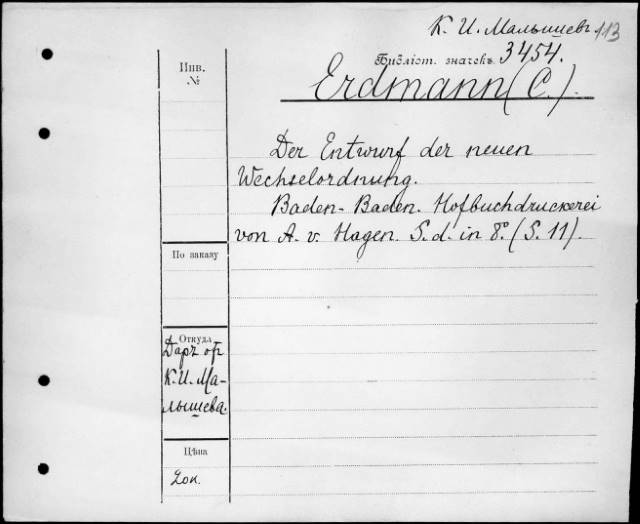 К. И. Малышевъ 113
Библіот. значекъ 3454.
Erdmann (C.).
Инв.
№
Der Entwurf der neuen
Wechselordnung.
Baden-Baden. Hofbuchdruckerei
von A. v. Hagen. S. d. in 8°. (S. 11).
По заказу
Откуда
Даръ отъ
К. И. Ма-
лышева.
Цѣна